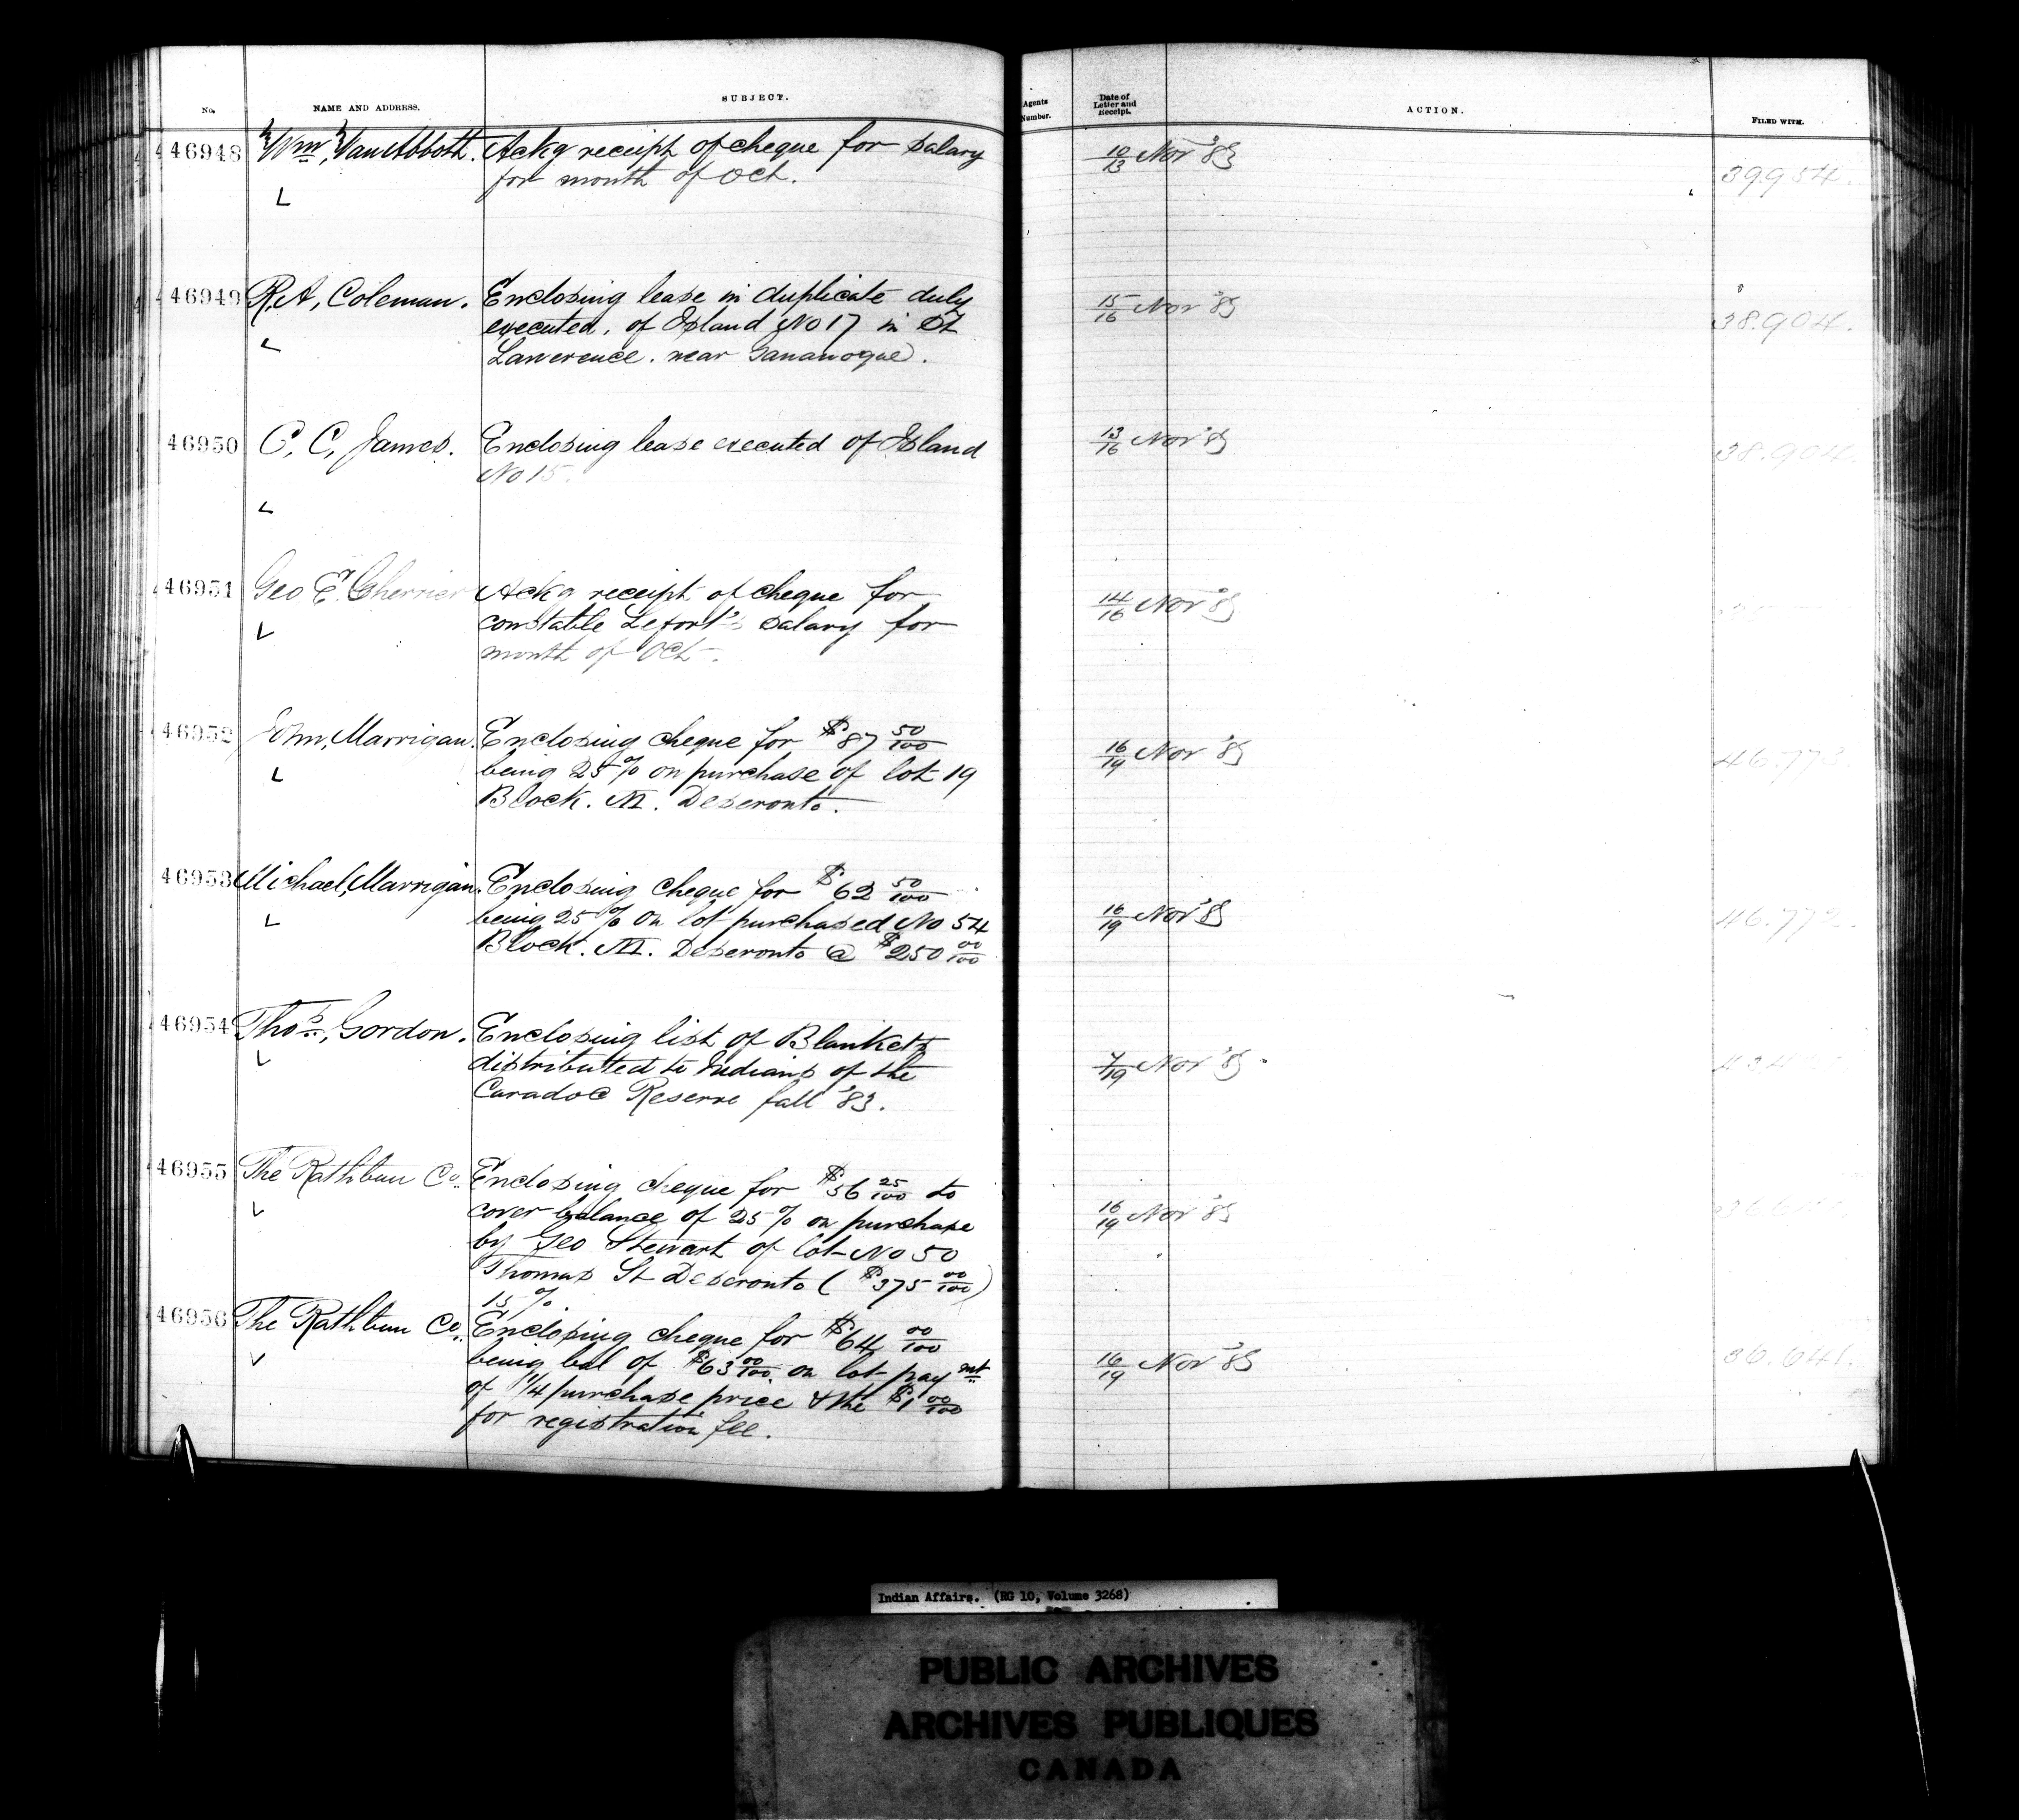 No.
NAME AND ADDRESS.
SUBJECT.
Agents Number.
Date of Letter and Receipt.
ACTION.
FILED WITH.
46948 Wm, Van Abbott. Ackg receipt of cheque for salary
for month of Oct.
10/13 Nov '83
39.954.
46949 R.A, Coleman. Enclosing lease in duplicate duly
executed, of Island No 17 in St
Lawerence. near Gananoque.
15/16 Nov '83
38.904.
46950 C, C, James. Enclosing lease executed of Island
No 15.
13/16 Nov '83
38.904.
46951 Geo E. Cherrier Ackg receipt of cheque for
constable Lefort's salary for
month of Oct.
14/16 Nov '83
46952 John, Marrigan. Enclosing cheque for $87 50/100
being 25% on purchase of lot 19
Block. M. Deseronto.
16/19 Nov '83
46.773.
46953 Michael, Marrigan. Enclosing cheque for $62 50/100
being 25% on lot purchased No 54
Block. M. Deseronto @ $250 00/100
16/19 Nov '83
46.772.
46954 Thos, Gordon. Enclosing list of Blankets
distributed to Indians of the
Caradoc Reserve fall '83.
7/19 Nov '83
46955 The Rathbun Co. Enclosing cheque for $56 25/100 to
cover balance of 25% on purchase
by Geo Stewart of lot No 50
Thomas St Deseronto ( $375 00/100 )
15%.
16/19 Nov '83
46956 The Rathbun Co. Enclosing cheque for $64 00/100
being bal of $63 00/100. on lot paymt
of 1/4 purchase price & the $1 00/100
for registration fee.
16/19 Nov '83
36.641.
Indian Affairs. (RG 10, Volume 3268)
PUBLIC ARCHIVES
ARCHIVES PUBLIQUES
CANADA